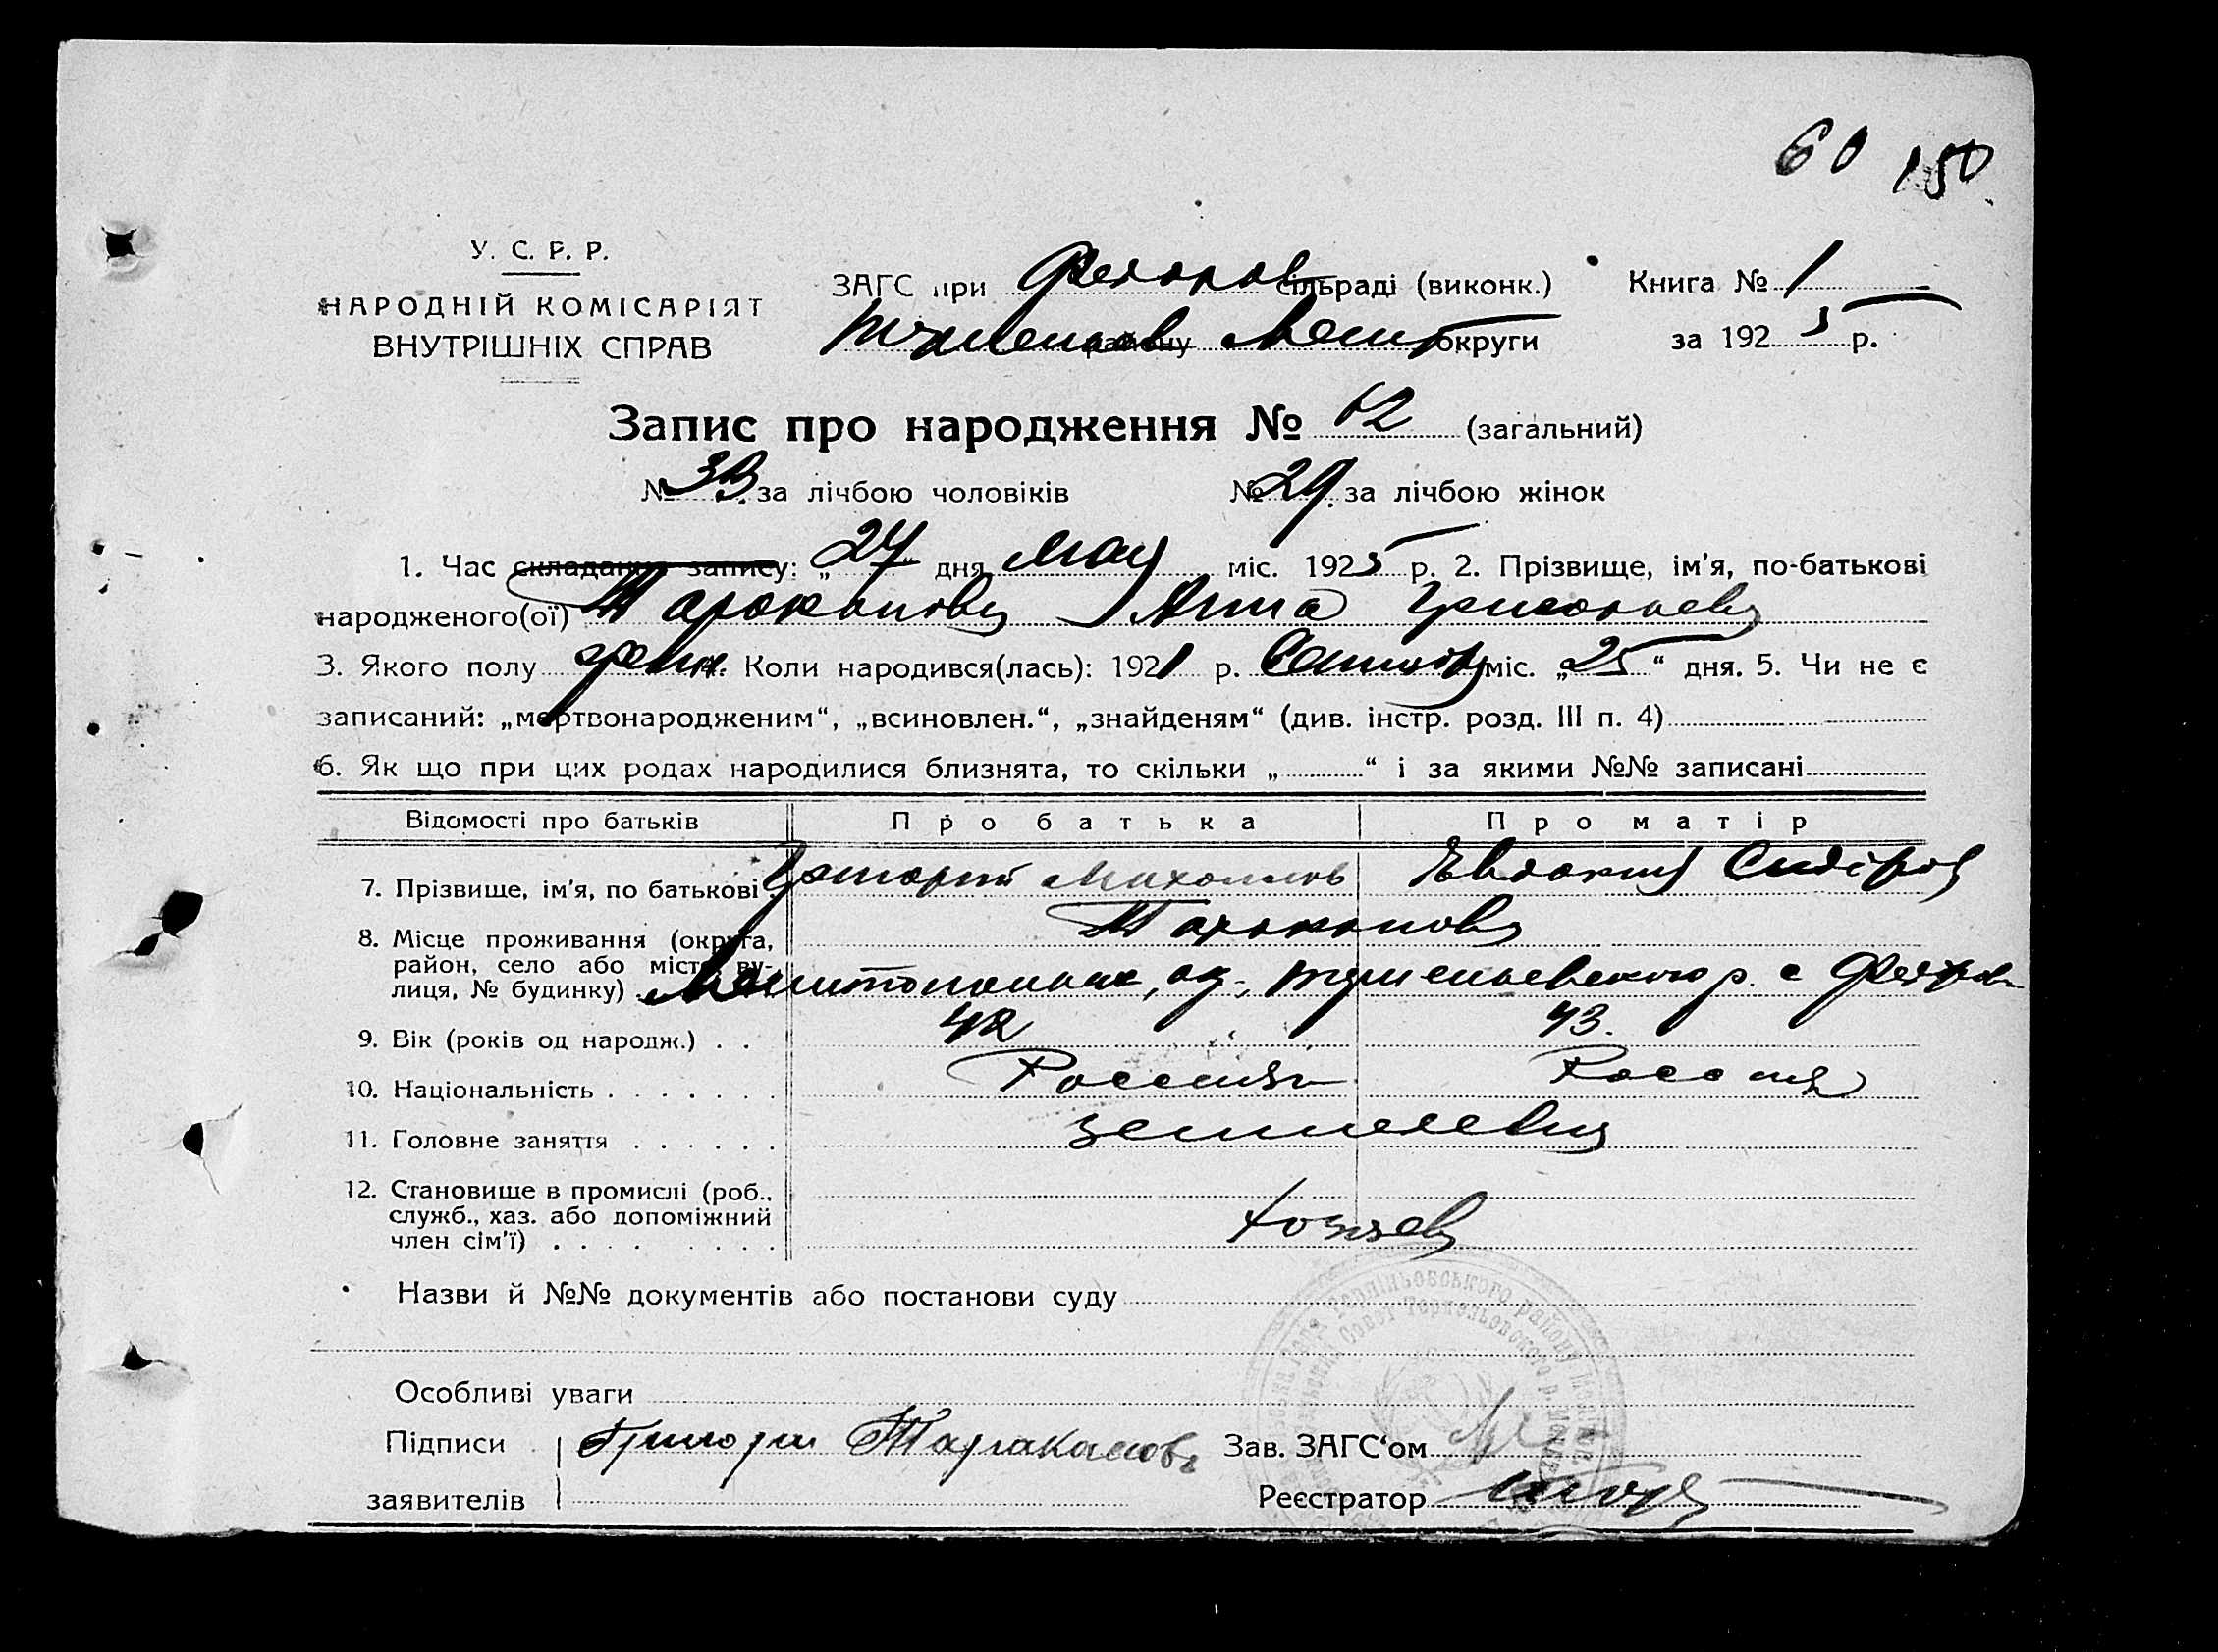 60 150
У. С. Р. Р.
НАРОДНІЙ КОМІСАРІЯТ
ВНУТРІШНІХ СПРАВ
ЗАГС при Федоров сільраді (виконк.) Книга № 1
району Мелит округи за 1925 р.
Запис про народження № 62 (загальний)
№ 33 за лічбою чоловіків № 29 за лічбою жінок
1. Час складання запису: „24“ дня Мая міс. 1925 р. 2. Прізвище, ім'я, по-батькові
народженого(ої) Тароканова Анна Григорьева
3. Якого полу жен. Коли народився(лась): 1921 р. міс. „25“ дня. 5. Чи не є
записаний: „мертвонародженим“, „всиновлен.“, „знайденям“ (див. інстр. розд. III п. 4)
6. Як що при цих родах народилися близнята, то скільки „ “ і за якими №№ записані
Відомості про батьків Про батька Про матір
7. Прізвище, ім'я, по батькові Григорий Михайлов Евдокия Сидіров
8. Місце проживання (округа, Тароканова
район, село або місто, ву-
лиця, № будинку) Мелитопольск, ок., р. с Федоров
9. Вік (років од народж.) 42 43.
10. Національність Россия Россия
11. Головне заняття земледелия
12. Становище в промислі (роб.,
служб., хаз. або допоміжний
член сім'ї) Хозяев
Назви й №№ документів або постанови суду
Особливі уваги
Підписи Григори Таракановъ Зав. ЗАГС‘ом
заявителів Реєстратор